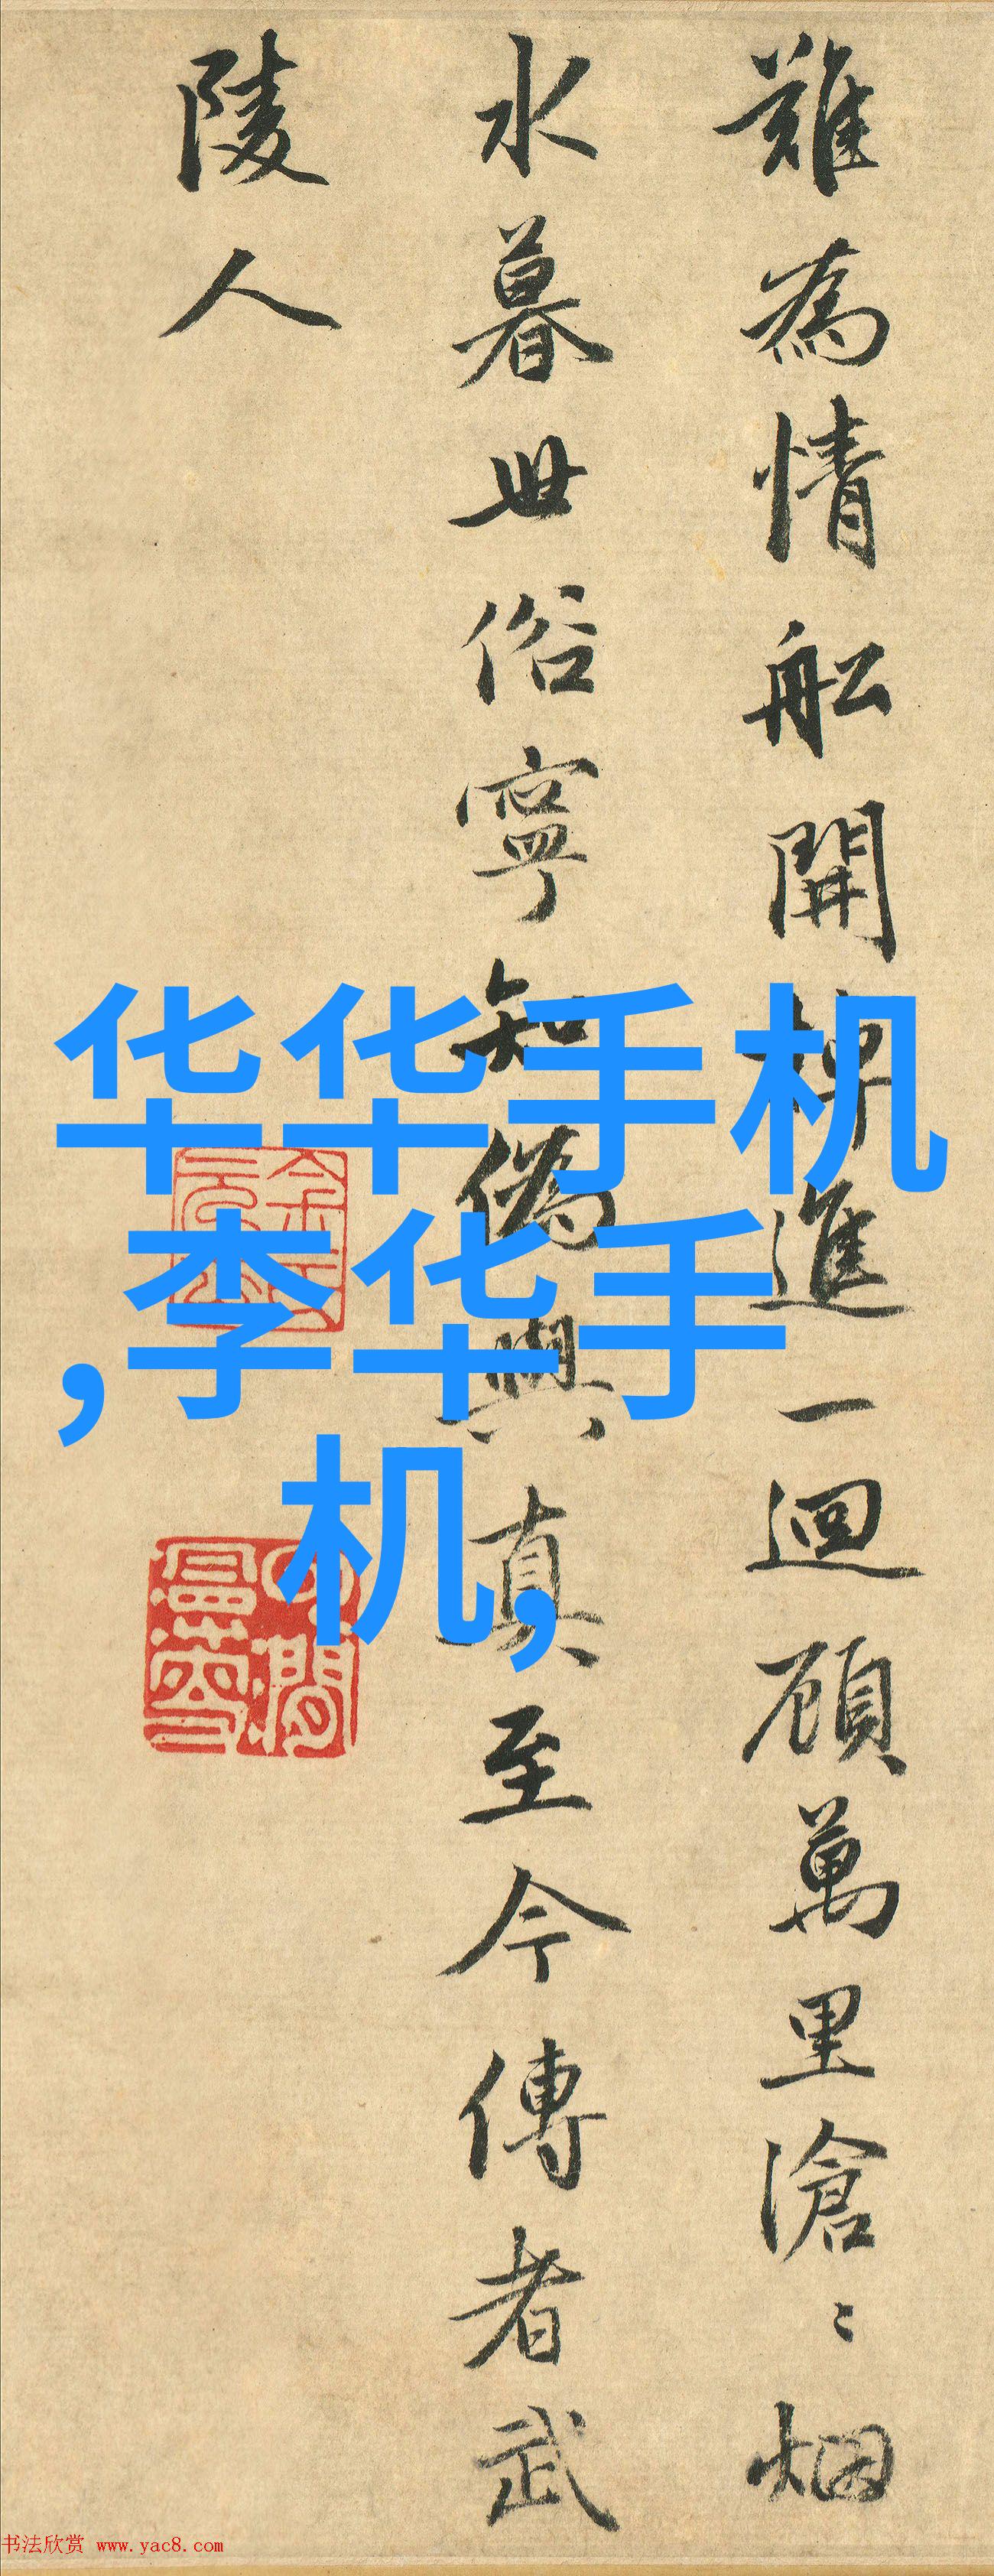 難為情舩開棹進一迴顧萬里滄〻烟
水暮世俗寧知偽與真至今傳者武
陵人
华华手机
,李华手
机,
书法欣赏 www.yac8.com